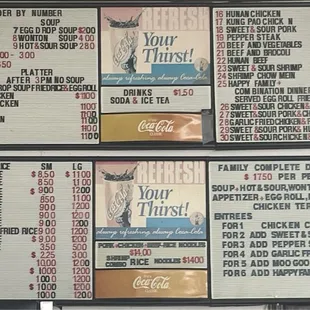 DER BY NUMBER
SOUP
7 EGG DROP SOUP $200
8 WONTON SOUP 400
9 HOT & SOUR SOUP 280
PLATTER
AFTER 3PM NO SOUP
OP SOUP FRIEDRICE & EGGROLL
CKEN $1100
1100
1100
1100
REFRESH
Your
Thirst!
always refreshing always Coca-Cola
DRINKS $1.50
SODA & ICE TEA
Coca-Cola
16 HUNAN CHICKEN
17 KUNG PAO CHICK N
18 SWEET & SOUR PORK
19 PEPPER STEAK
20 BEEF AND VEGETABLES
21 BEEF AND BROCOLI
22 HUNAN BEEF
23 SWEET & SOUR SHRIMP
24 SHRIMP CHOW MEIN
25 HAPPY FAMILY
COMBINATION DINNER
SERVED EGG ROLL FRIE
26 SWEET & SOUR
27 SWEET & SOUR
28 GARLIC FRIED
29 SWEET & SOUR PORK
30 SWEET & SOUR PORK
RICE SM LG
$8.50 $1100
$900 $1100
900 1200
900 1200
900 1200
FRIED RICE 900 1200
900 1200
3.50 500
$2.25 300
1000 1200
1000 1200
1000 1200
REFRESH
Your
Thirst!
always refreshing always Coca-Cola
PORK-CHICKEN-BEEF RICE NOODLES
$14.00
SHRIMP
COMBO RICE NOODLES $1400
Coca-Cola
FAMILY COMPLETE D
$1750 PER PE
SOUP HOT & SOUR, WONT
APPETIZER EGG ROLL,
CHICKEN TER
ENTREES
FOR 1 CHICKEN C
FOR 2 ADD SWEET &
FOR 3 ADD PEPPER
FOR 4 ADD GARLIC
FOR 5 ADD MOO GO
FOR 6 ADD HAPPY FAM